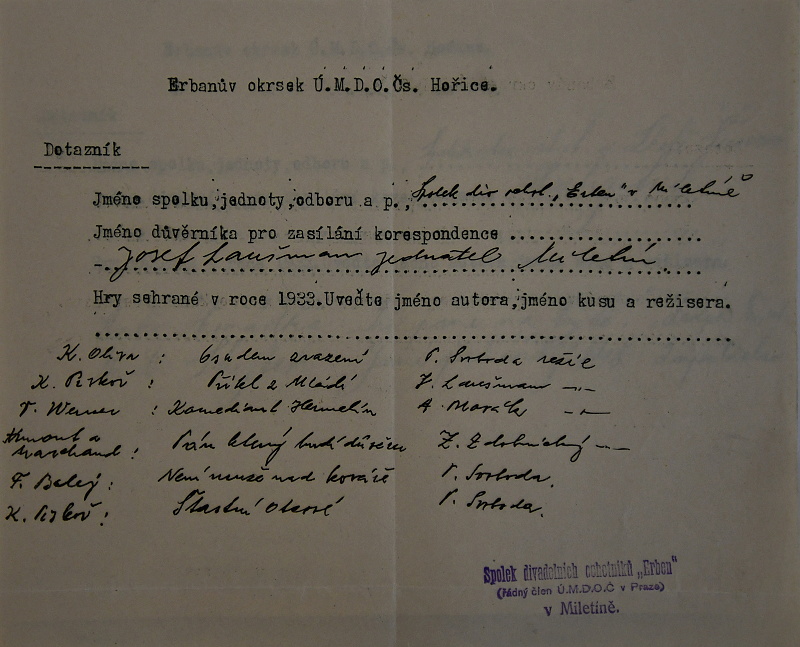 Erbanův okrsek Ú.M.D.O.Čs. Hořice.
Dotazník
Jméno spolku, jednoty, odboru a p., Spolek div. ochot. „Erben" v Miletíně
Jméno důvěrníka pro zasílání korespondence ....................
Josef Laušman jednatel Miletín
Hry sehrané v roce 1933. Uveďte jméno autora, jméno kusu a režisera.
K. Oliva : Osudem sražení V. Svoboda režie
K. Piskoř : Mládí J. Laušman -„-
V. Werner : Komediant Hermelín A. Morák -„-
Armont a
Marchand : Pán který budí důvěru Z. Zdobnický -„-
F. Balej : Není nouze nad kováře V. Svoboda.
K. Piskoř : Šťastní otcové V. Svoboda.
Spolek divadelních ochotníků „Erben"
(řádný člen Ú.M.D.O.Č v Praze)
v Miletíně.